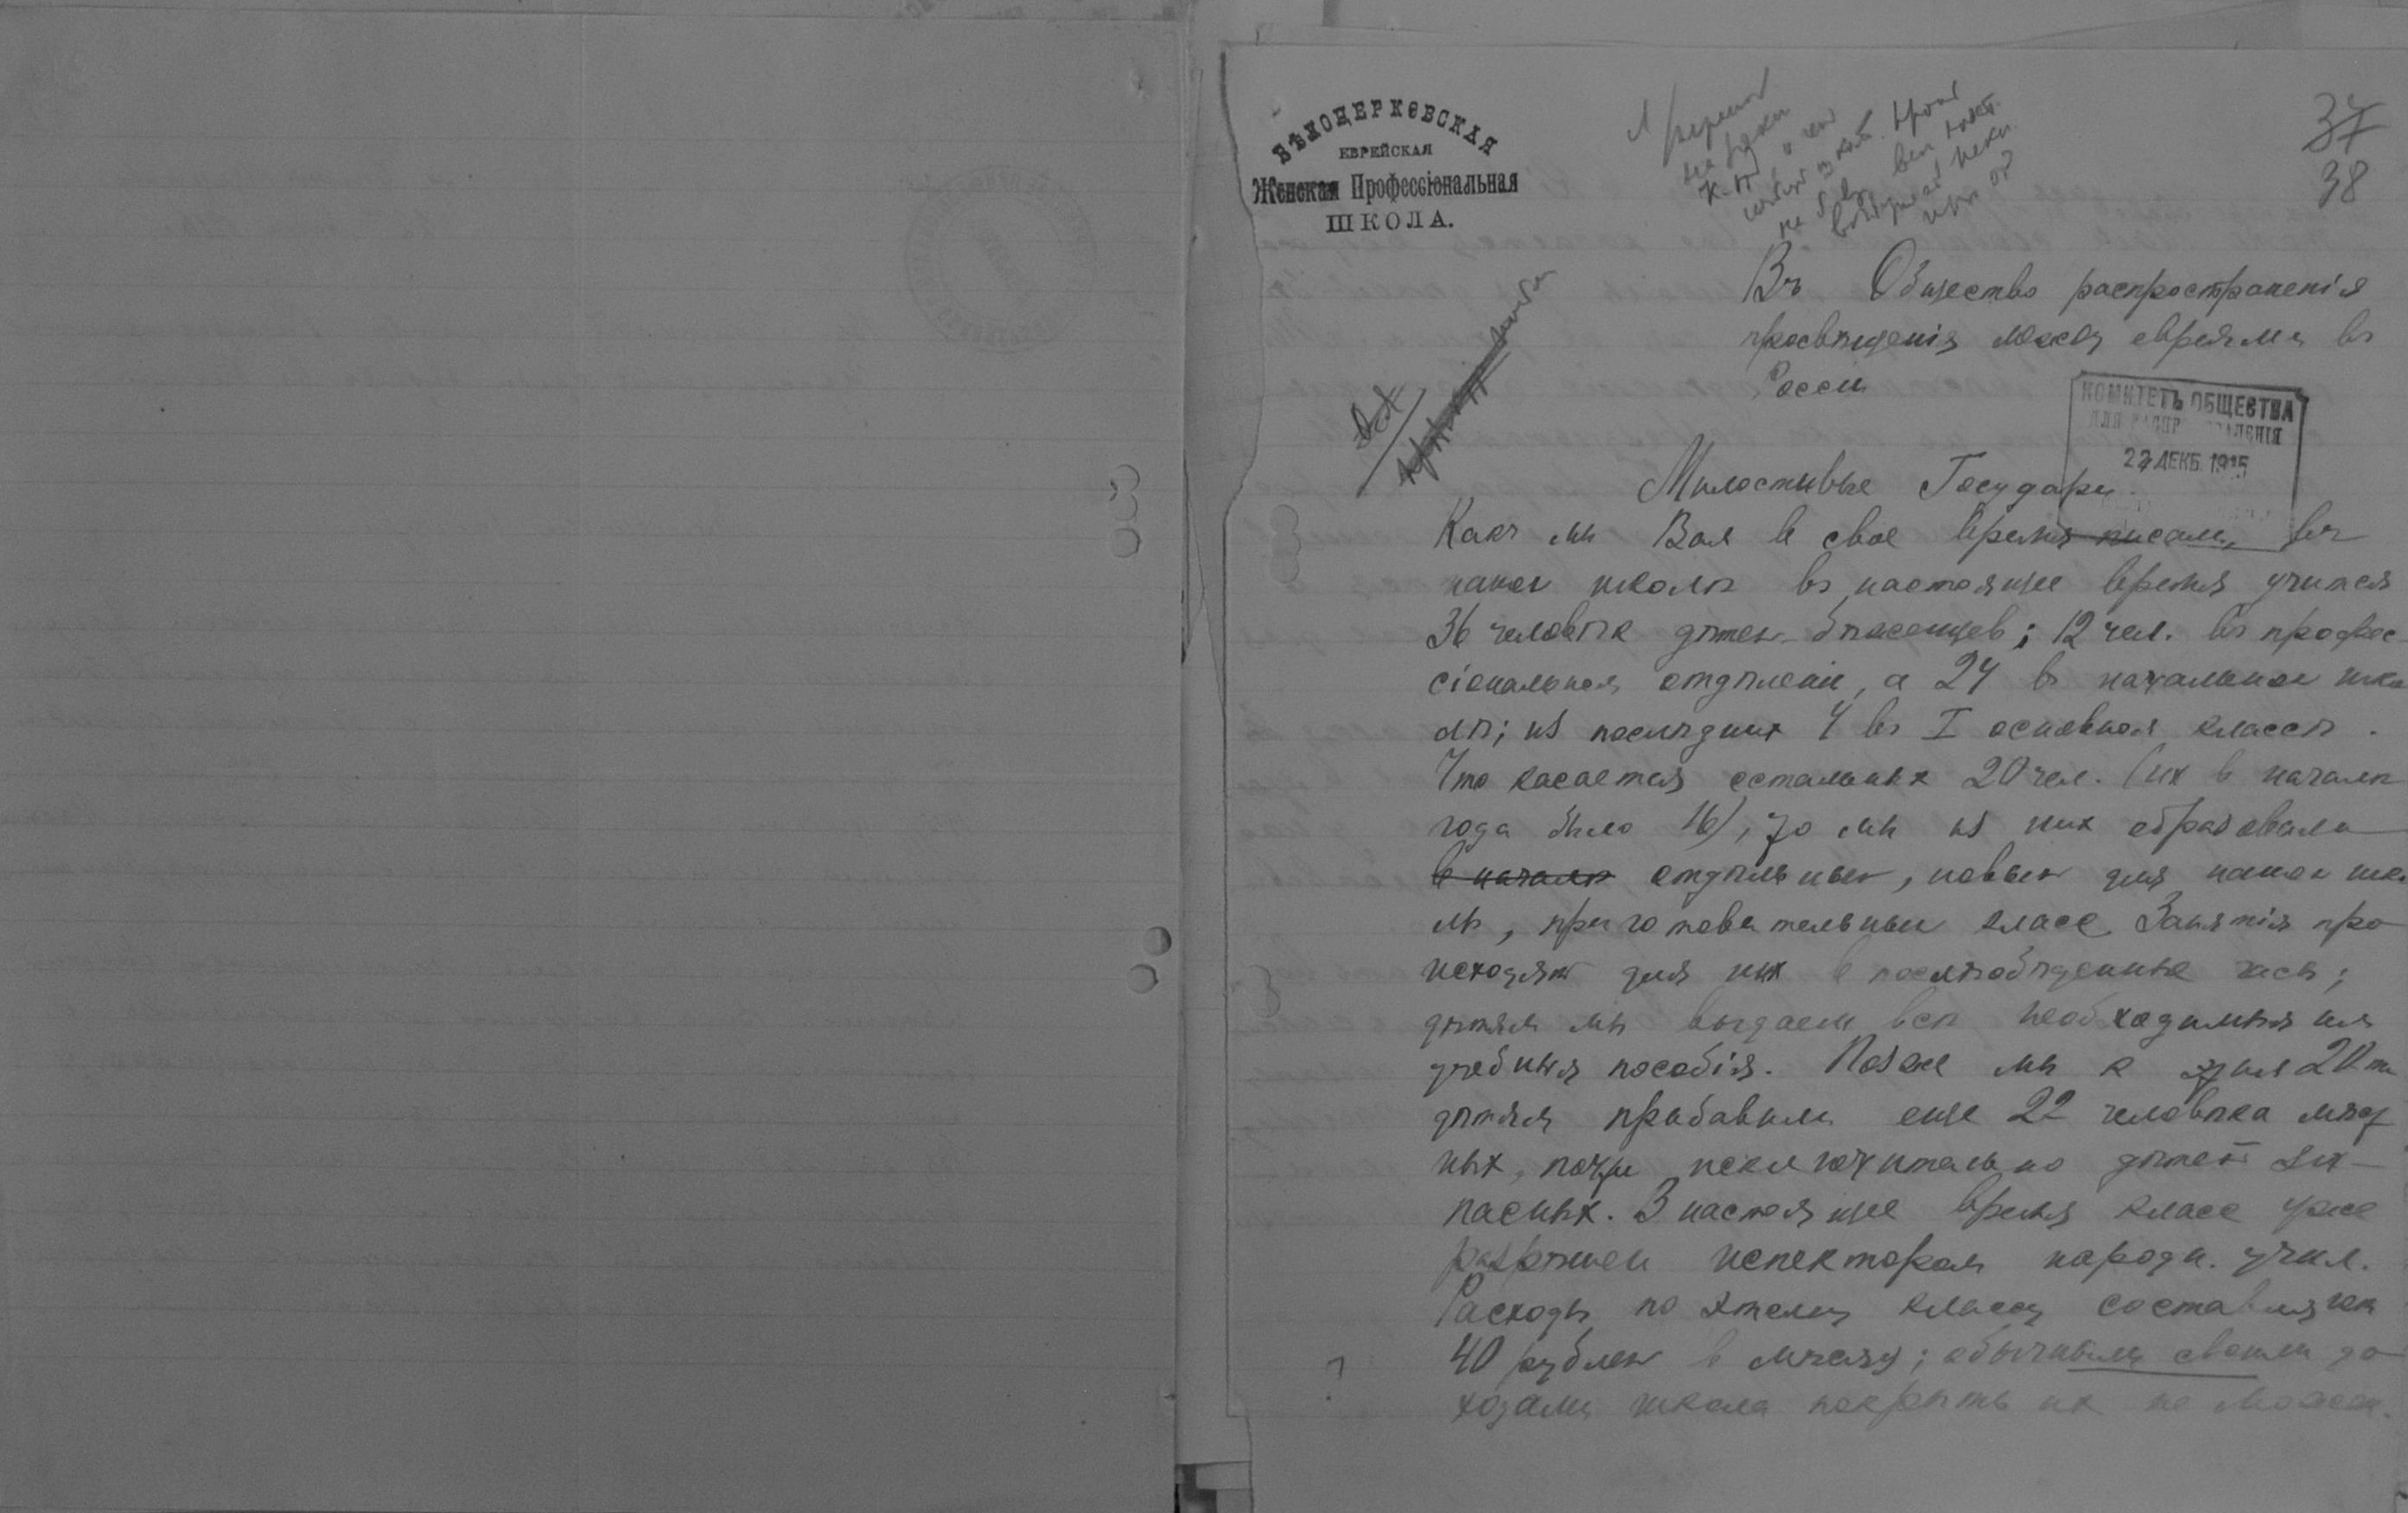 БѢЛОЦЕРКОВСКАЯ
ЕВРЕЙСКАЯ
Женская Профессіональная
ШКОЛА.
37
38
Въ Общество распространенія
просвѣщенія между евреями въ
Россіи
КОМИТЕТЪ ОБЩЕСТВА
ДЛЯ РАСПР АНЕНІЯ
22 ДЕКБ. 1915
Милостивые Государи.
Какъ мы Вам в свое время писали, въ
нашей школѣ въ настоящее время учится
36 человѣк дѣтей-бѣженцев; 12 чел. въ профес-
сіональном отдѣленіи, а 24 въ начальной шко
лѣ; из послѣдних 4 въ I основном классѣ.
Что касается остальных 20 чел. (их в началѣ
года было 16), то мы из них образовали
в началѣ отдѣльный, новый для нашей шко
лы, приготовительный класс. Занятія про-
исходят для них в послѣобѣденные часы;
дѣтям мы выдаем всѣ необходимыя им
учебныя пособія. Позже мы к этим 20-ти
дѣтям прибавили еще 22 человѣка мѣст
ных, почти исключительно дѣтей за-
пасных. В настоящее время класс уже
разрѣшен испектором народн. учил.
Расходы по этому классу составляют
40 рублей в мѣсяц; обычными своими до-
? ходами школа покрыть их не может.